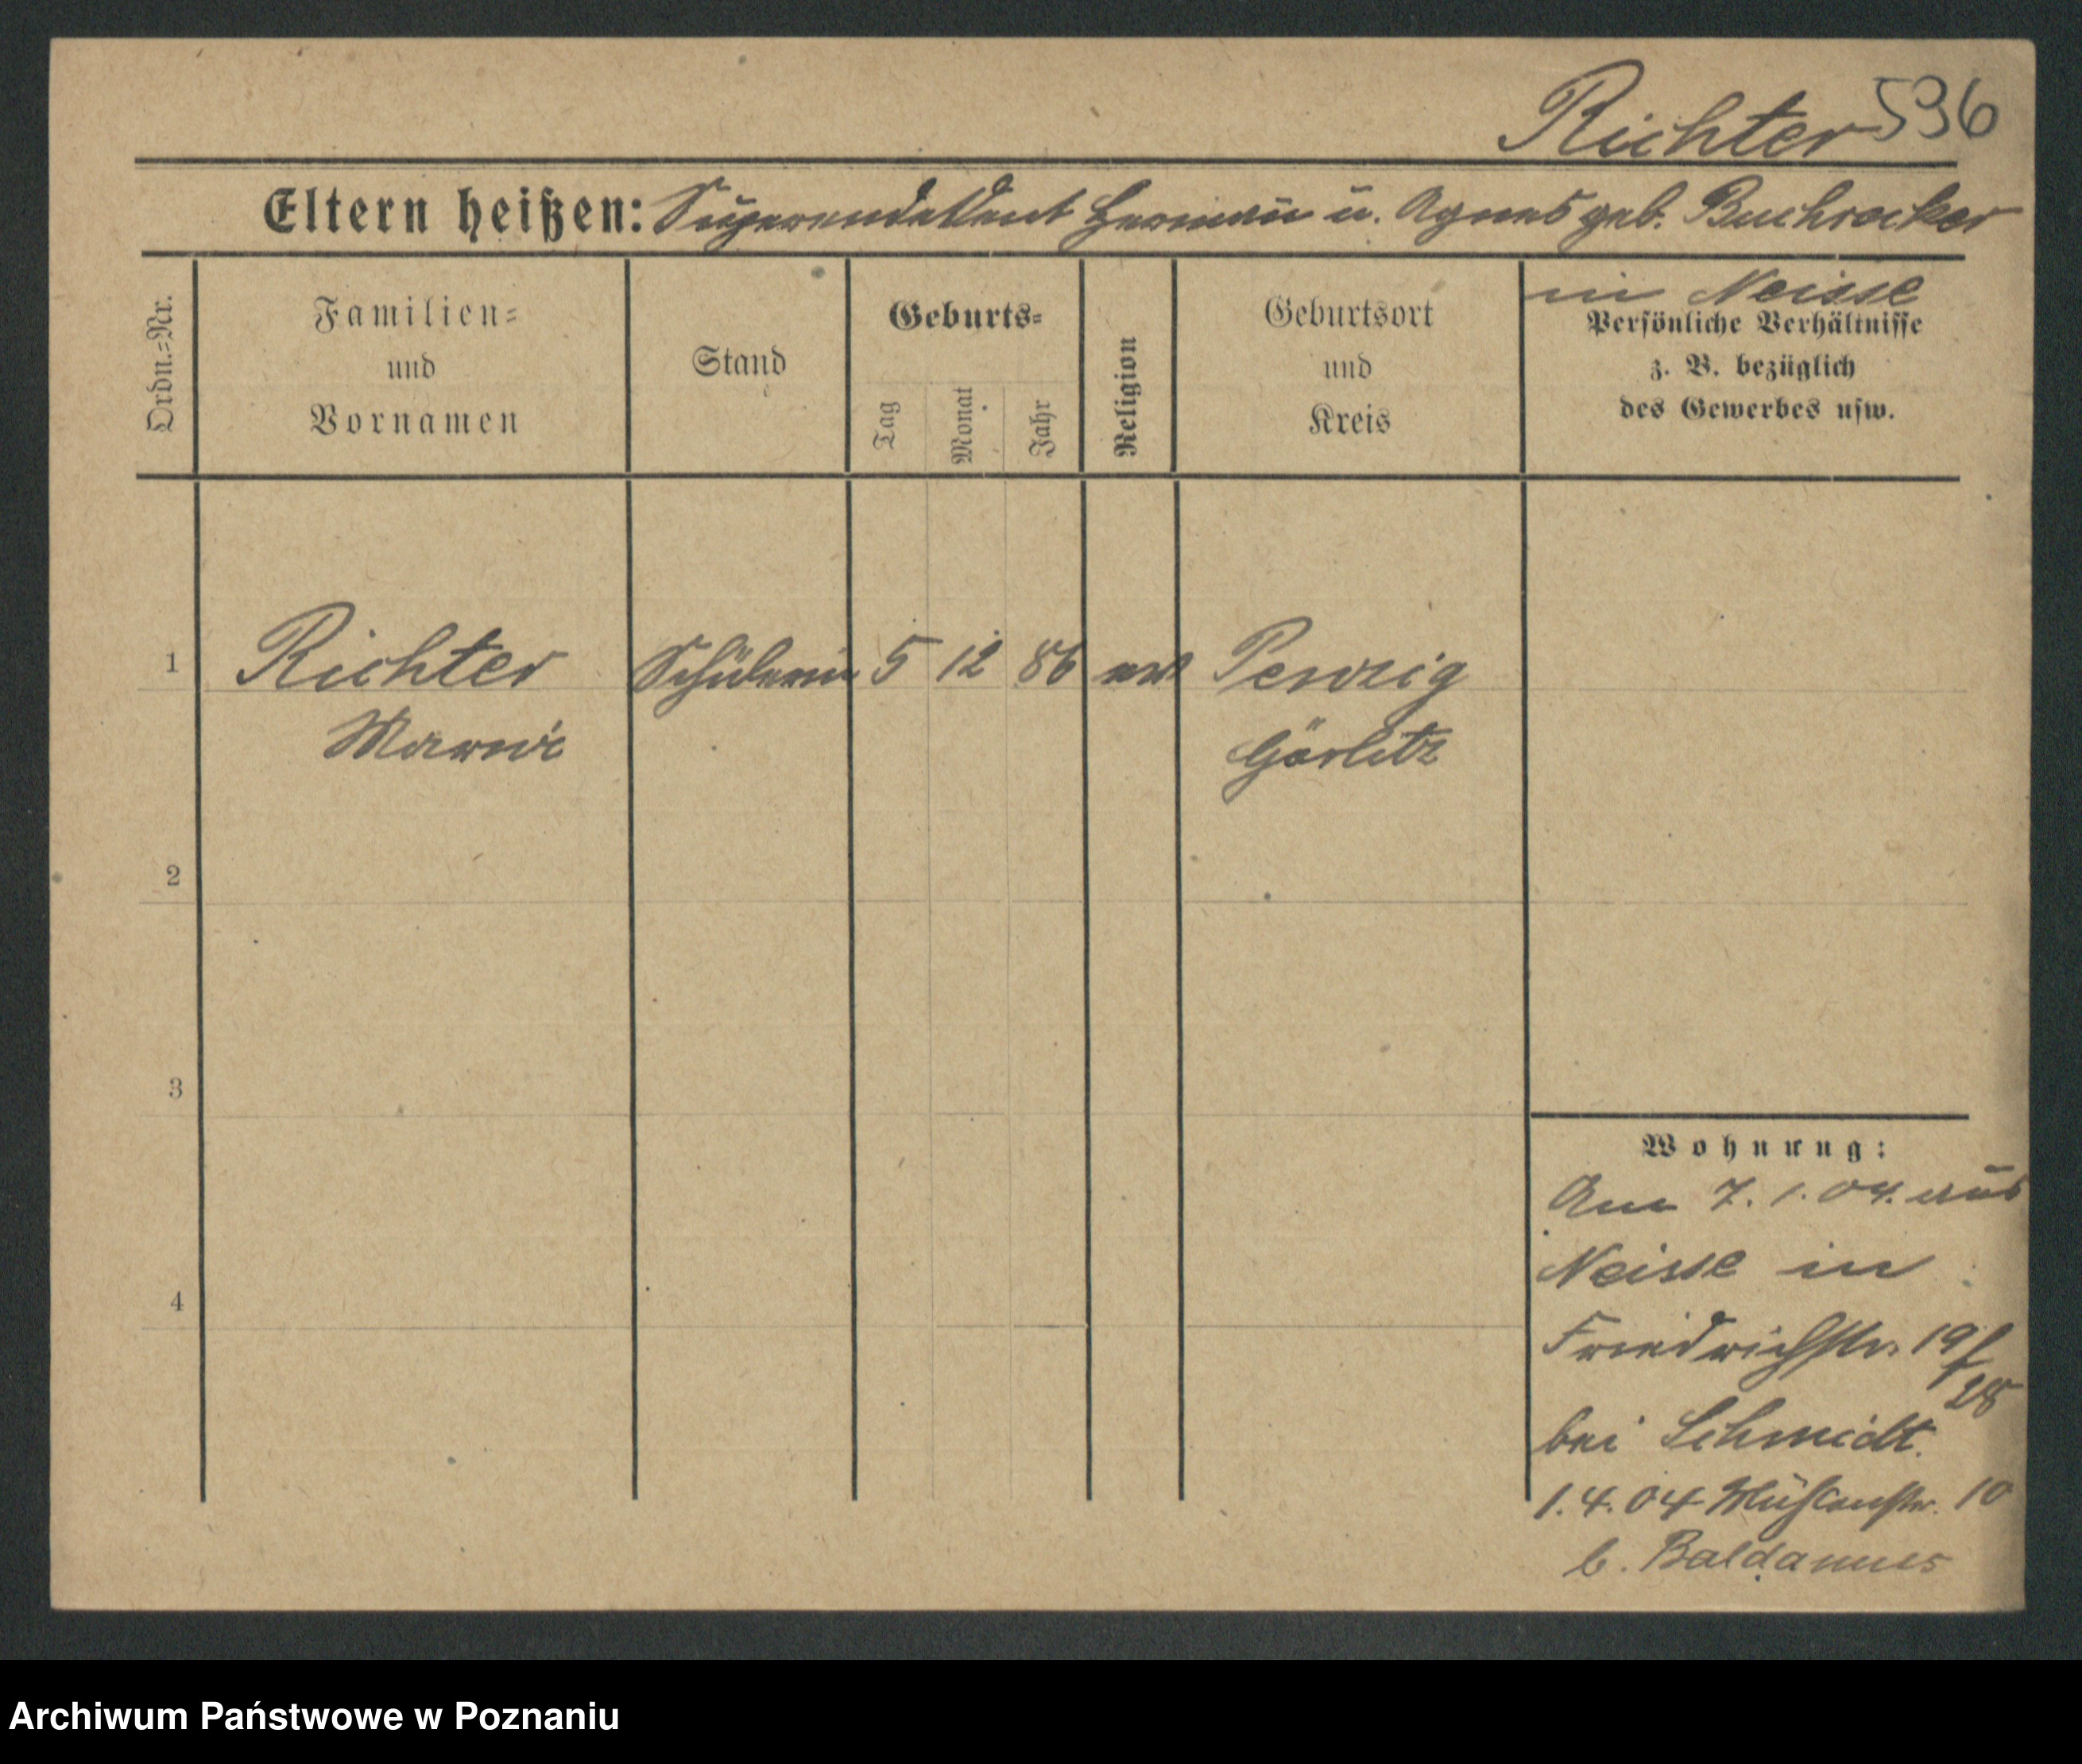 Richter 536
Eltern heißen: Superendattent Hermañ u. Agnes geb. Buchrocker
in Neisse
Ordn.=Nr.
Familien=
und
Vornamen
Stand
Geburts=
Tag
Monat
Jahr
Religion
Geburtsort
und
Kreis
Persönliche Verhältnisse
z. B. bezüglich
des Gewerbes usw.
1 Richter Schülerin 5 12 86 ev Penzig
Görlitz
2
3
4
Wohnung:
Am 7. 1. 04. aus
Neisse in
Friedrichstr. 19/
bei Schmidt.
1.4.04 Mühlenstr. 10
b. Baldamus
Archiwum Państwowe w Poznaniu